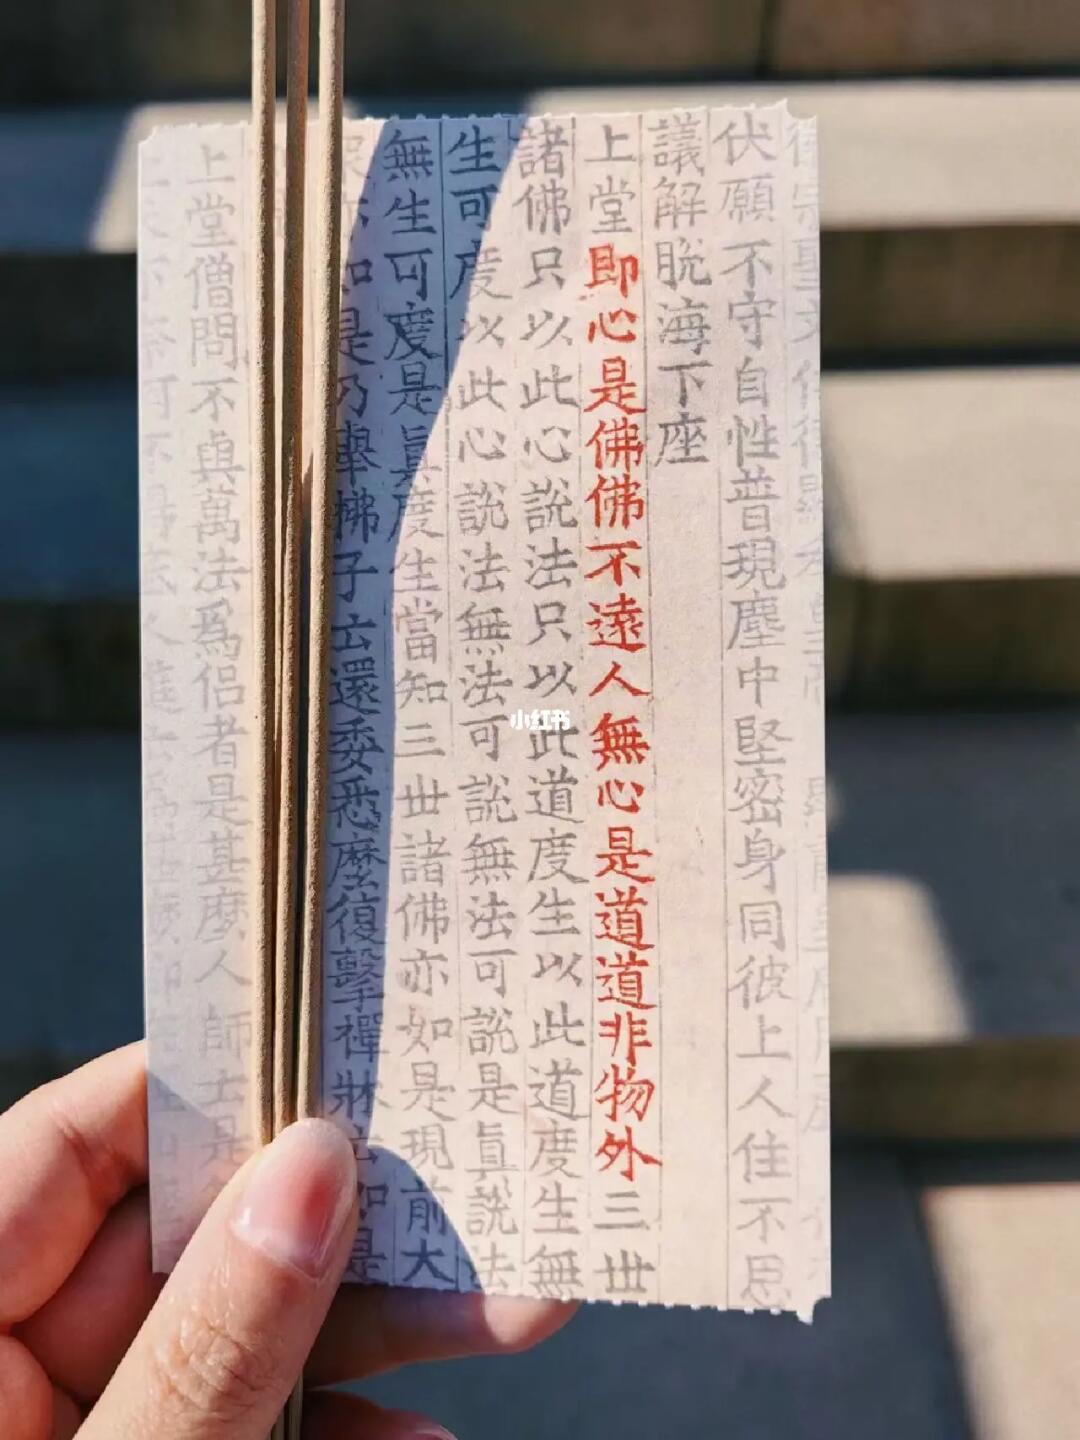 伏願不守自性普現塵中堅密身同彼上人住不思
議解脫海下座
上堂即心是佛佛不遠人無心是道道非物外三世
諸佛只以此心說法只以此道度生以此道度生無
生可度以此心說法無法可說無法可說是眞說法
無生可度是眞度生當知三世諸佛亦如是現前大
亦如是乃舉拂子云還委悉麼復擊禪牀云如是
上堂僧問不與萬法爲侶者是甚麼人師云是
小红书